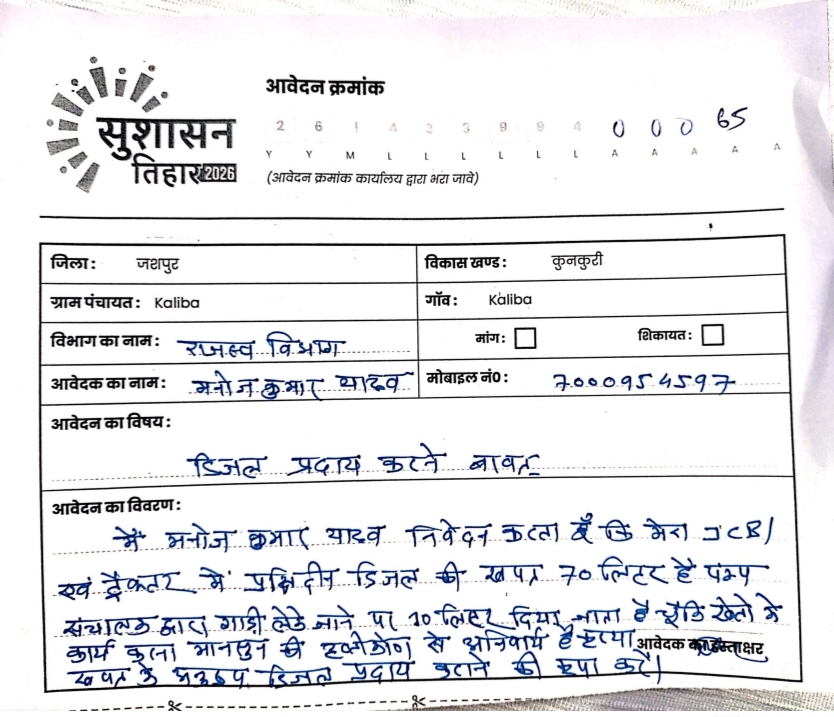 सुशासन
तिहार 2026
आवेदन क्रमांक
2 6 1 4 3 3 9 9 4 0 0 0 65
Y Y M L L L L L L A A A A A
(आवेदन क्रमांक कार्यालय द्वारा भरा जावे)
जिला : जशपुर
विकास खण्ड : कुनकुरी
ग्राम पंचायत : Kaliba
गाँव : Kaliba
विभाग का नाम : राजस्व विभाग
मांग : शिकायत :
आवेदक का नाम : मनोज कुमार यादव
मोबाइल नं0 : 7000954597
आवेदन का विषय :
डिजल प्रदाय करने बावत्
आवेदन का विवरण :
मैं मनोज कुमार यादव निवेदन करता हूँ कि मेरा JCB/
एवं ट्रैक्टर में प्रतिदीन डिजल की खपत 70 लिटर है पम्प
संचालक द्वारा गाडी लेके जाने पर 10 लिटर दिया जाता है चूँकि खेतो में
कार्य करना मानसुन की से अनिवार्य है कृप्या
खपत के अनुरुप डिजल प्रदाय कराने की कृपा करें।
आवेदक का हस्ताक्षर